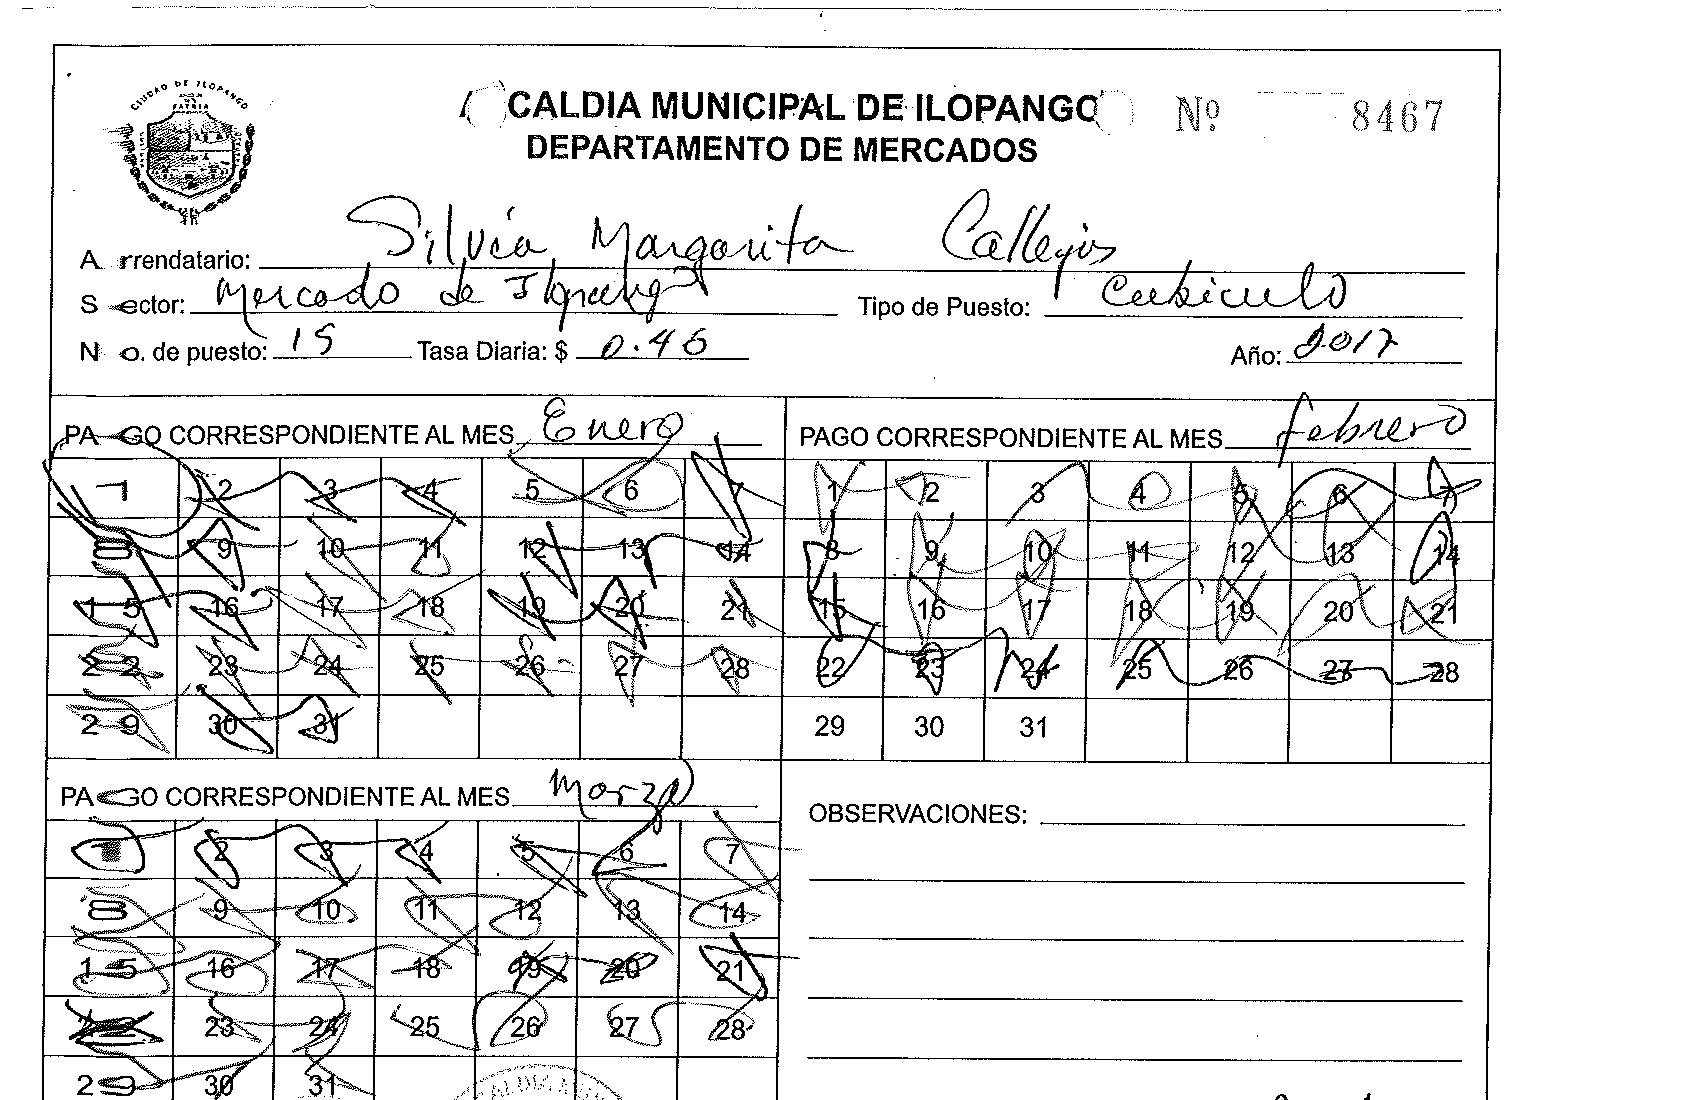 CIUDAD DE ILOPANGO
CALDIA MUNICIPAL DE ILOPANGO Nº 8467
DEPARTAMENTO DE MERCADOS
Arrendatario: Silvia Margarita Callejas
Sector: Mercado de Ilopango Tipo de Puesto: Cubiculo
No. de puesto: 15 Tasa Diaria: $ 0.46 Año: 2017
PAGO CORRESPONDIENTE AL MES Enero
1 2 3 4 5 6 7
8 9 10 11 12 13 14
15 16 17 18 19 20 21
22 23 24 25 26 27 28
29 30 31
PAGO CORRESPONDIENTE AL MES febrero
1 2 3 4 5 6 7
8 9 10 11 12 13 14
15 16 17 18 19 20 21
22 23 24 25 26 27 28
29 30 31
PAGO CORRESPONDIENTE AL MES Marzo
1 2 3 4 5 6 7
8 9 10 11 12 13 14
15 16 17 18 19 20 21
22 23 24 25 26 27 28
29 30 31
OBSERVACIONES: